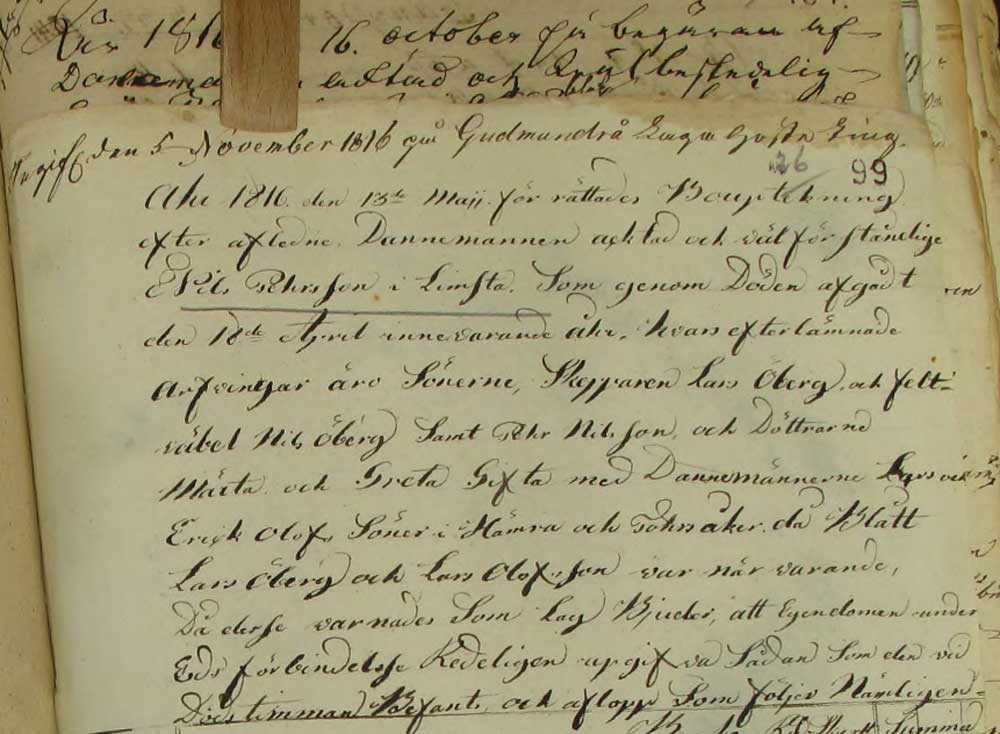 Åhr 1816 16. october på begäran af
Danнema acktad och
Ingifv. den 5 November 1816 på Gudmundrå Laga Höste Ting.
26 99
Åhr 1816. den 13de Maji. för rättades Bouptekning
efter afledne. Dannemannen acktad och välförståndige
Nils Pehrsson i Limsta. Som genom Döden afgådt
den 18de April innevarande åhr, hvars efterlämnade
Arfvingar äro Sönerne, Skepparen Lars Öberg, och felt-
väbel Nils Öberg Samt Pehr Nilsson, och Döttrarne
Märta och Greta Gifta med Dannemännerne Lars och
Erick Olofs Söner i Hämra och Torrsåker. då Blått
Lars Öberg och Lars Olofsson var när varande,
Då desse varnades Som Lag Bjuder, att Egendomen under
Eds förbindelse Redeligen upgifva Sådan Som den vid
Dödstimman Befants, och aflopp Som följer Nämligen-
Summa